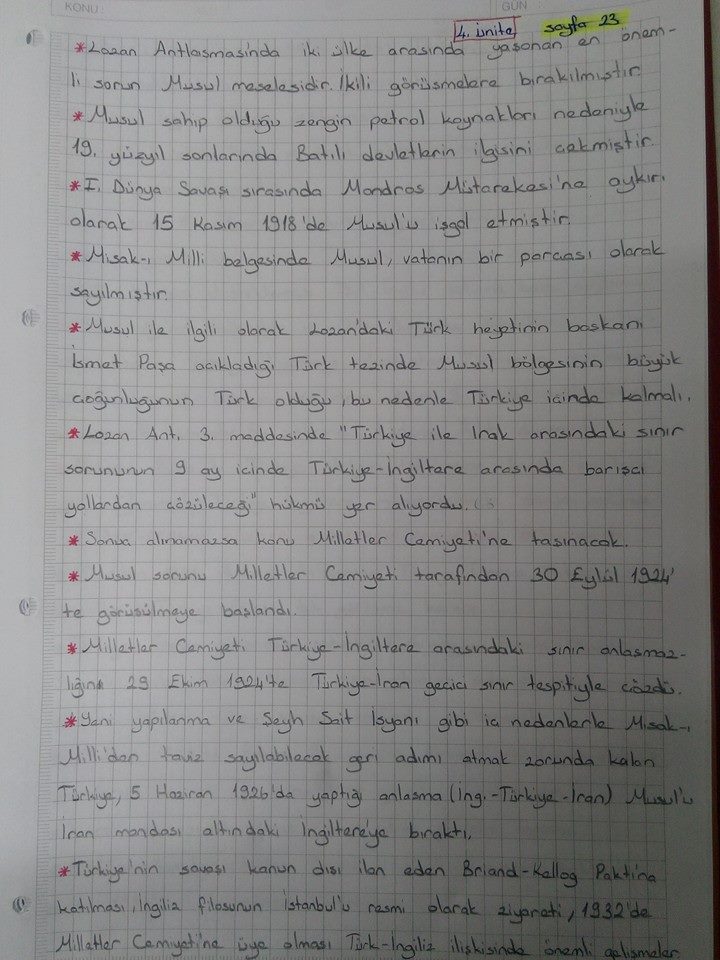 KONU GÜN
4. ünite sayfa 23
*Lozan Antlaşmasında iki ülke arasında yaşanan en önem-
li sorun Musul meselesidir. İkili görüşmelere bırakılmıştır.
*Musul sahip olduğu zengin petrol kaynakları nedeniyle
19. yüzyıl sonlarında Batılı devletlerin ilgisini çekmiştir.
*I. Dünya Savaşı sırasında Mondros Mütarekesi'ne aykırı
olarak 15 Kasım 1918'de Musul'u işgal etmiştir.
*Misak-ı Milli belgesinde Musul, vatanın bir parçası olarak
sayılmıştır.
*Musul ile ilgili olarak Lozan'daki Türk heyetinin başkanı
İsmet Paşa açıkladığı Türk tezinde Musul bölgesinin büyük
çoğunluğunun Türk olduğu, bu nedenle Türkiye içinde kalmalı.
*Lozan Ant. 3. maddesinde "Türkiye ile Irak arasındaki sınır
sorununun 9 ay içinde Türkiye-İngiltere arasında barışçı
yollardan çözüleceği" hükmü yer alıyordu.
*Sonuç alınamazsa konu Milletler Cemiyeti'ne taşınacak.
*Musul sorunu Milletler Cemiyeti tarafından 30 Eylül 1924'
te görüşülmeye başlandı.
*Milletler Cemiyeti Türkiye-İngiltere arasındaki sınır anlaşmaz-
lığını 29 Ekim 1924'te Türkiye-Iran geçici sınır tespitiyle çözdü.
*Yeni yapılanma ve Şeyh Sait İsyanı gibi iç nedenlerle Misak-ı
Milli'den taviz sayılabilecek geri adımı atmak zorunda kalan
Türkiye, 5 Haziran 1926'da yaptığı anlaşma (İng.-Türkiye-Iran) Musul'u
Iran mandası altındaki İngiltere'ye bıraktı.
*Türkiye'nin savaşı kanun dışı ilan eden Briand-Kellog Paktına
katılması, İngiliz filosunun İstanbul'u resmi olarak ziyareti, 1932'de
Milletler Cemiyeti'ne üye olması Türk-İngiliz ilişkisinde önemli gelişmeler